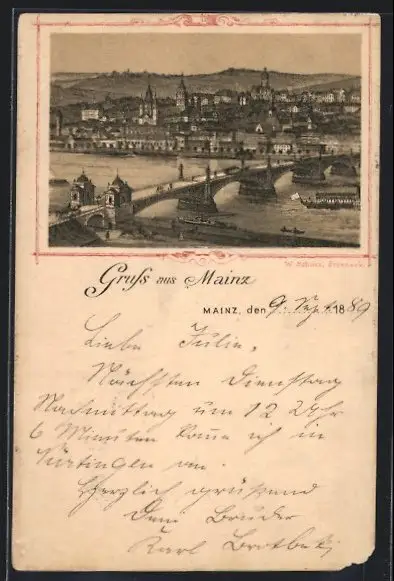 W. Schultz, Frankfurt.
Gruss aus Mainz
MAINZ, den 9. Sept. 1889
Liebe Julie,
Nächsten Dienstag
Nachmittag um 12 Uhr
6 Minuten komme ich in
Nürtingen an.
Herzlich grüßend
Dein Bruder
Karl